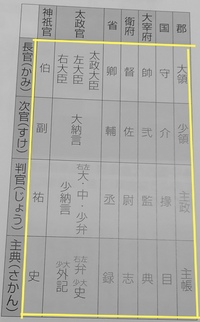 神祇官 太政官 省 衛府 大宰府 国 郡
長官(かみ) 伯 太政大臣 左大臣 右大臣 卿 督 帥 守 大領
次官(すけ) 副 大納言 輔 佐 弐 介 少領
判官(じょう) 祐 右左大・中・少弁 少納言 丞 尉 監 掾 主政
主典(さかん) 史 右左弁少大史 少大外記 録 志 典 目 主帳